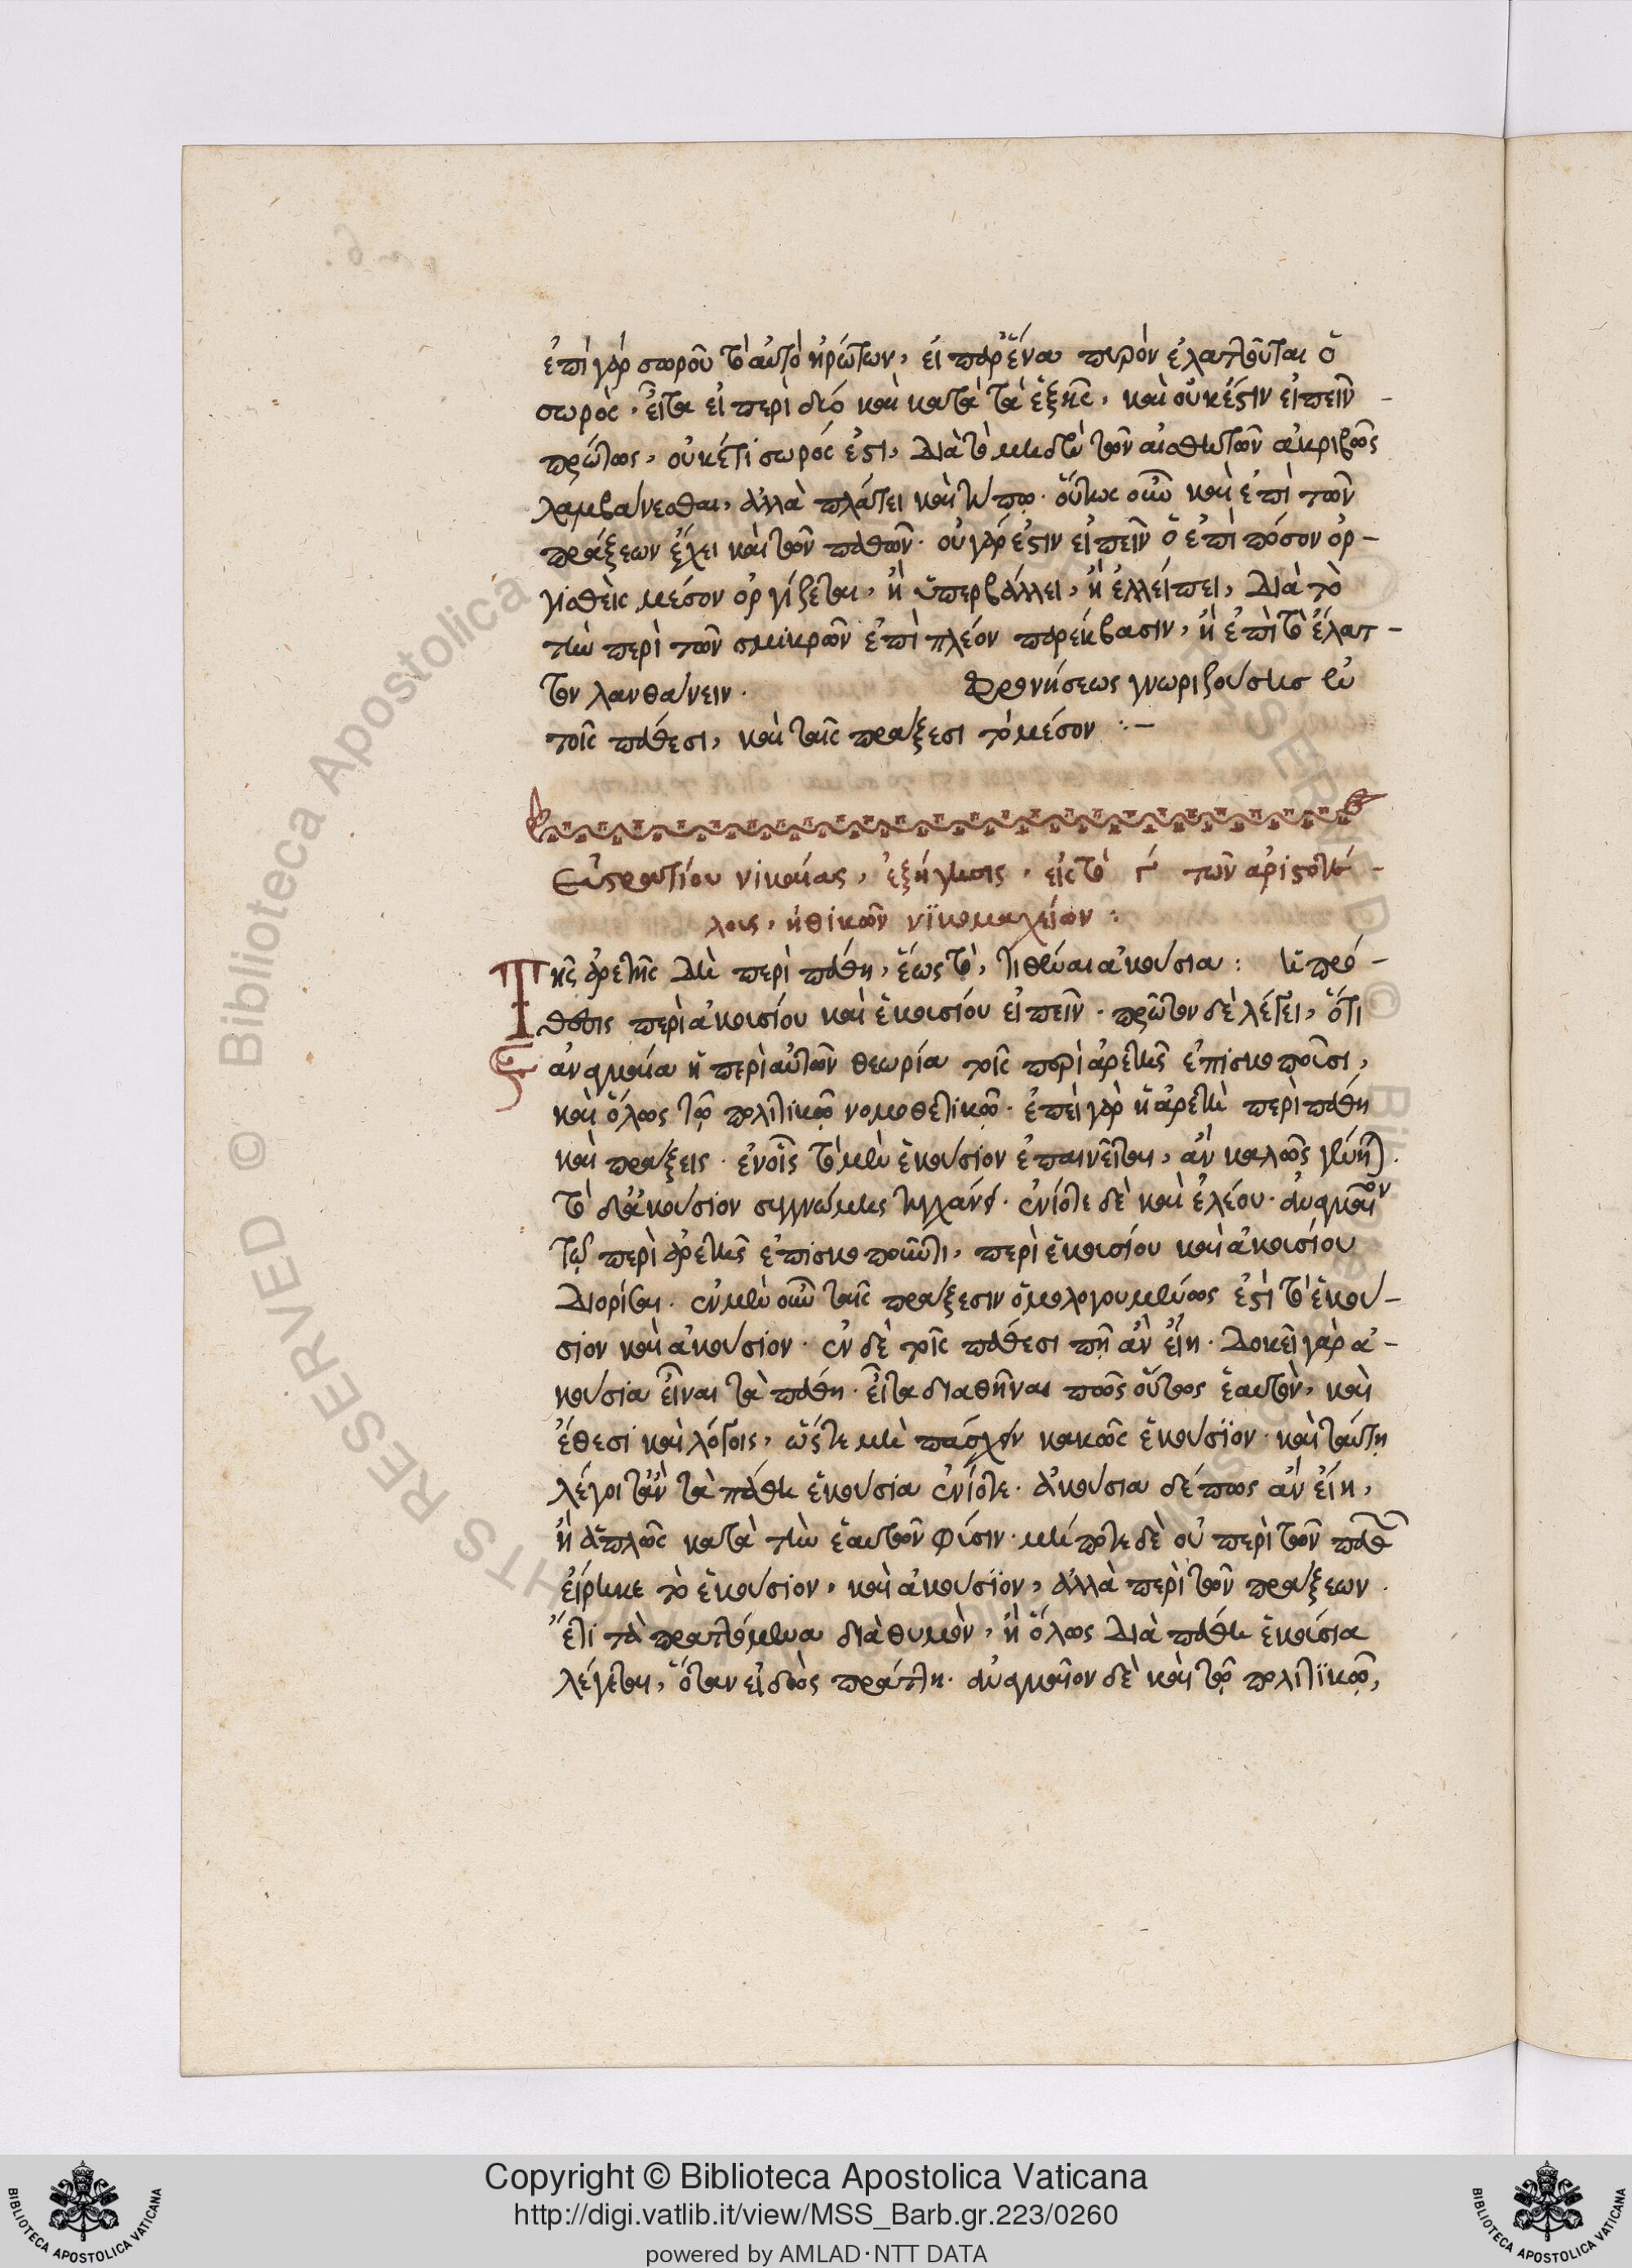 ἐπὶ γὰρ σωροῦ τὸ αὐτὸ ἠρώτων, εἰ παρ' ἕνα πυρὸν ἐλαττοῦται ὁ
σωρὸς, εἶτα εἰ περὶ δύο καὶ κατὰ τὰ ἑξῆς, καὶ οὐκ ἔστιν εἰπεῖν
πρώτως, οὐκέτι σωρός ἐστι, διὰ τὸ μηδὲν τῶν αἰσθητῶν ἀκριβῶς
λαμβάνεσθαι, ἀλλὰ πλάτει καὶ τύπῳ. οὕτως οὖν καὶ ἐπὶ τῶν
πράξεων ἔχει καὶ τῶν παθῶν. οὐ γάρ ἐστιν εἰπεῖν ὁ ἐπὶ πόσον ὀρ-
γισθεὶς μέσον ὀργίζεται, ἢ ὑπερβάλλει, ἢ ἐλλείπει, διὰ τὸ
τὴν περὶ τῶν σμικρῶν ἐπὶ πλέον παρέκβασιν, ἢ ἐπὶ τὸ ἔλατ-
τον λανθάνειν. Φρονήσεως γνωριζούσης ἐν
τοῖς πάθεσι, καὶ ταῖς πράξεσι τὸ μέσον :-
Εὐστρατίου νικαίας, ἐξήγησις, εἰς τὸ γ́ τῶν ἀριστοτέ-
λους, ἠθικῶν νικομαχείων :
Τῆς ἀρετῆς δὴ περὶ πάθη, ἕως τὸ, τιθέναι ἀκούσια : ἡ πρό-
θεσις περὶ ἀκουσίου καὶ ἑκουσίου εἰπεῖν. πρῶτον δὲ λέγει, ὅτι
ἀναγκαία ἡ περὶ αὐτῶν θεωρία τοῖς περὶ ἀρετῆς ἐπισκοποῦσι,
καὶ ὅλως τῷ πολιτικῷ νομοθετικῷ. ἐπεὶ γὰρ ἡ ἀρετὴ περὶ πάθη
καὶ πράξεις. ἐν οἷς τὸ μὲν ἑκούσιον ἐπαινεῖται, ἂν καλῶς
τὸ δ' ἀκούσιον συγγνώμης τυγχάνει. ἐνίοτε δὲ καὶ ἐλέου. ἀναγκαῖον
τῷ περὶ ἀρετῆς ἐπισκοποῦντι, περὶ ἑκουσίου καὶ ἀκουσίου
διορίσαι. ἐν μὲν οὖν ταῖς πράξεσιν ὁμολογουμένως ἐστὶ τὸ ἑκού-
σιον καὶ ἀκούσιον. ἐν δὲ τοῖς πάθεσι πῇ ἂν εἴη. δοκεῖ γὰρ ἀ-
κούσια εἶναι τὰ πάθη. εἶτα διαθῆναι πῶς οὕτως ἑαυτὸν, καὶ
ἔθεσι καὶ λόγοις, ὥστε μὴ πάσχειν κακῶς ἑκούσιον. καὶ ταύτῃ
λέγοιτ' ἂν τὰ πάθη ἑκούσια ἐνίοτε. ἀκούσια δέ πως ἂν εἴη,
ἢ ἁπλῶς κατὰ τὴν ἑαυτῶν φύσιν. μή ποτε δὲ οὐ περὶ τῶν παθῶν
εἴρηκε τὸ ἑκούσιον, καὶ ἀκούσιον, ἀλλὰ περὶ τῶν πράξεων.
ἔτι τὰ πραττόμενα διὰ θυμὸν, ἢ ὅλως διὰ πάθη ἑκούσια
λέγεται, ὅταν εἰδὼς πράττῃ. ἀναγκαῖον δὲ καὶ τῷ πολιτικῷ,
Copyright © Biblioteca Apostolica Vaticana
http://digi.vatlib.it/view/MSS_Barb.gr.223/0260
powered by AMLAD·NTT DATA